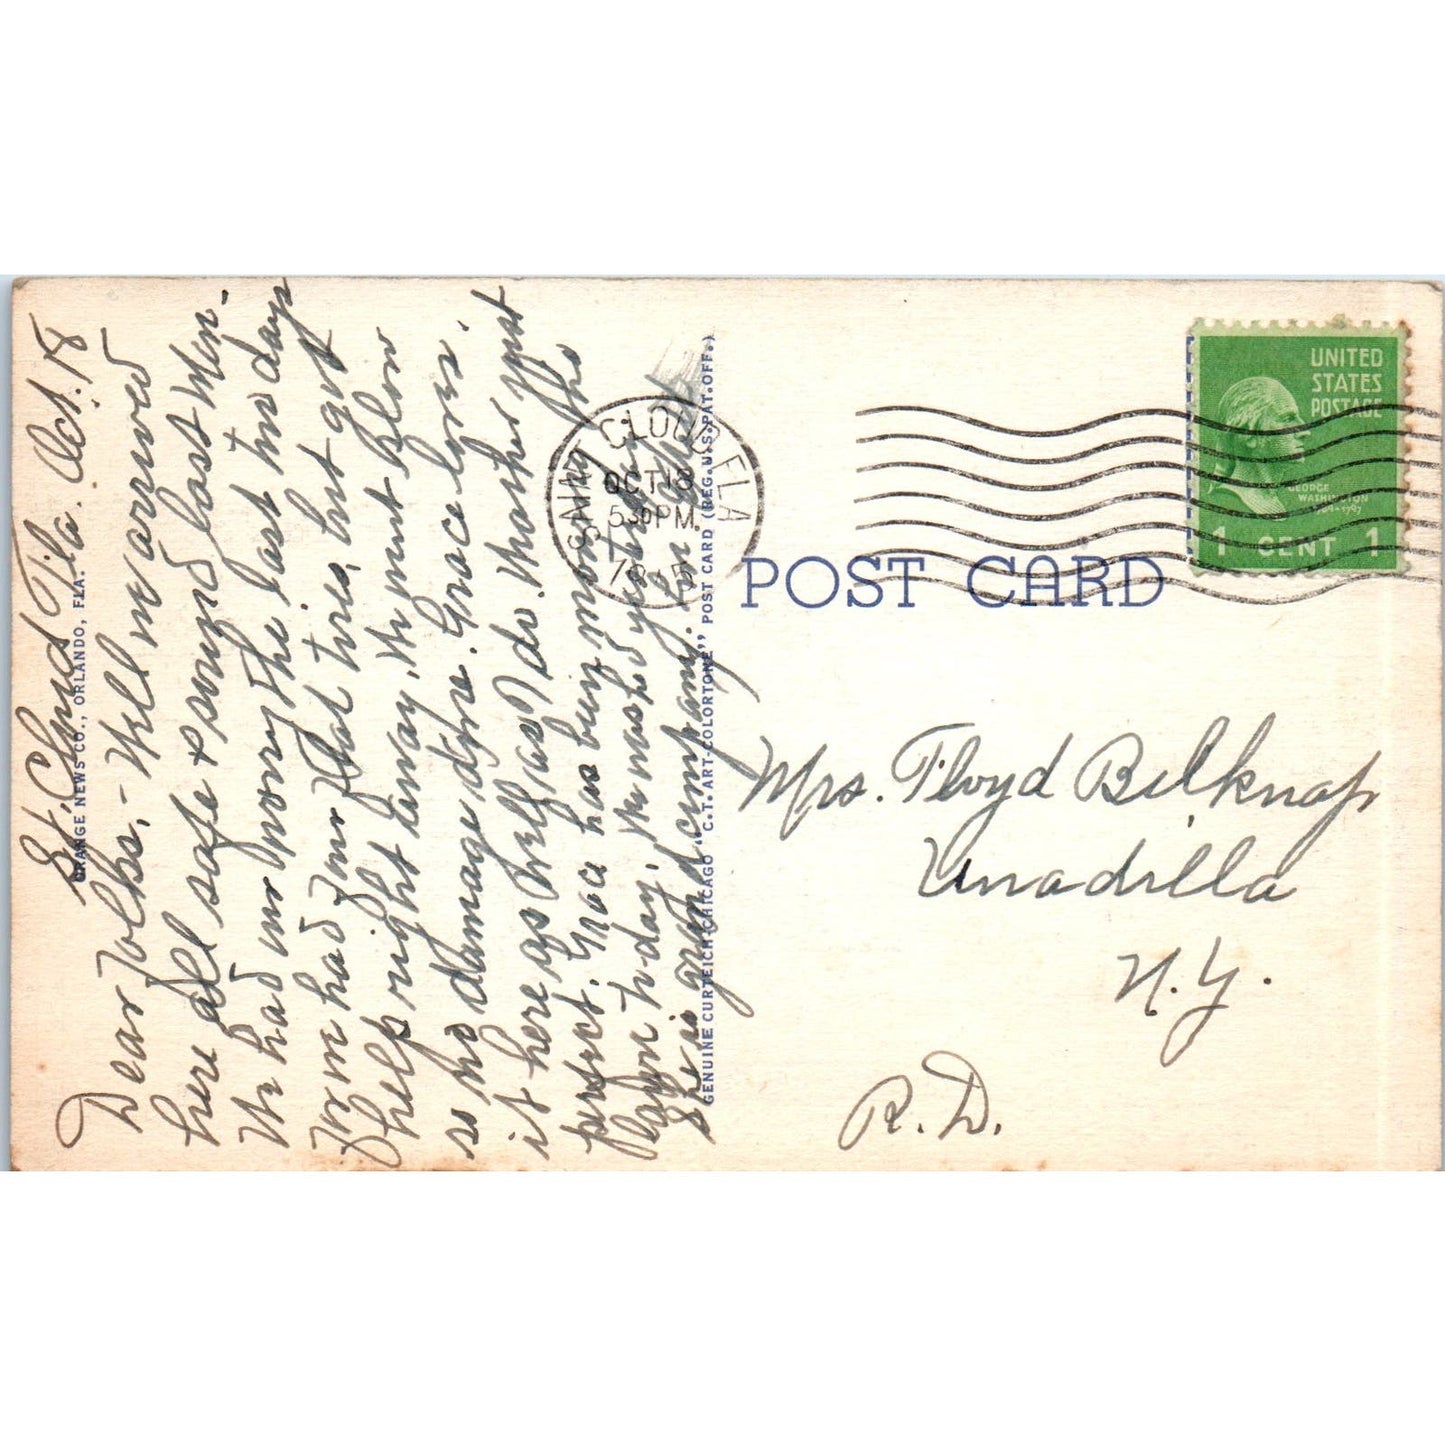 St. Cloud Fla. Oct. 18
Dear Folks,- Well we arrived
here all safe & sound last Mon-
We had our worry the last two days
for we had four flat tires, but got
help right away. We went slow
so no damage done. Grace loves
it here as well as I do. Weather just
perfect. Grace has been moving the
We washed yesterday
She is good company.
ORANGE NEWS CO., ORLANDO, FLA.
GENUINE CURTEICH-CHICAGO "C.T. ART-COLORTONE" POST CARD (REG. U.S. PAT. OFF.)
SAINT CLOUD FLA
OCT 18
5 30 PM
POST CARD
UNITED
STATES
POSTAGE
GEORGE
WASHINGTON
1789-1797
1 CENT 1
Mrs. Floyd Belknap
Unadilla
N.Y.
R.D.